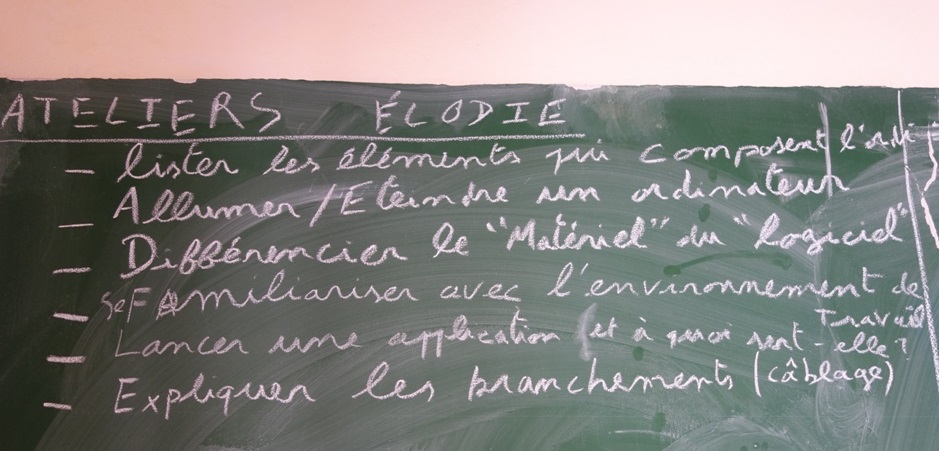 ATELIERS ÉLODIE
- lister les éléments qui composent l'ordi
- Allumer/Eteindre un ordinateur
- Différencier le "Matériel" du "logiciel"
- Se FAmiliariser avec l'environnement de Travail
- Lancer une application (et à quoi sert-elle?
- Expliquer les branchements (câblage)